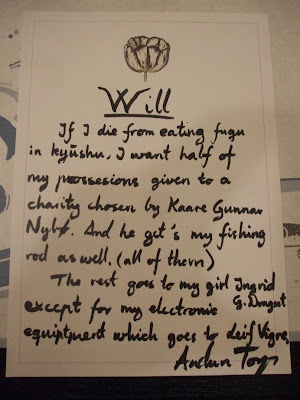 Will
If I die from eating fugu
in kyūshu, I want half of
my possesions given to a
charity chosen by Kaare Gunnar
Nybø. And he get's my fishing
rod as well. (all of them)
The rest goes to my girl Ingrid
G. Dragset
except for my electronic
equiptment which goes to Leif Vigre.